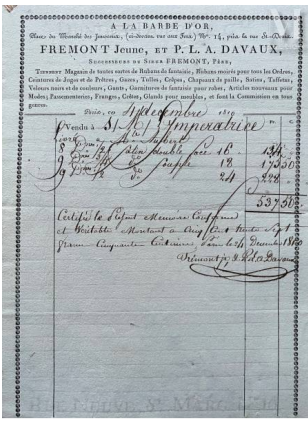 A LA BARBE D'OR,
Place du Marché des Jacobins, (ci-devant rue aux Fers) N.° 14, près la rue St.-Denis.
FREMONT Jeune, ET P. L. A. DAVAUX,
Successeurs du Sieur FREMONT, Père,
Tiennent Magasin de toutes sortes de Rubans de fantaisie, Rubans moirés pour tous les Ordres,
Ceintures de Juges et de Prêtres, Gazes, Tulles, Crêpes, Chapeaux de paille, Satins, Taffetas,
Velours noirs et de couleurs, Gants, Garnitures de fantaisie pour robes, Articles nouveaux pour
Modes; Passementeries, Franges, Cotons, Glands pour meubles, et font la Commission en tous
genres.
Paris, ce 4 décembre 1810
Vendu à S. M. l'Impératrice
8 satin double face 16
9 18 173 50
9 1/2 do 24 228
537 50
Certifié le présent Mémoire Conforme
et Véritable Montant à Cinq Cent trente Sept
francs Cinquante Centimes, Paris le 24 Décembre 1810
Frémont J. P. L. A. Davaux